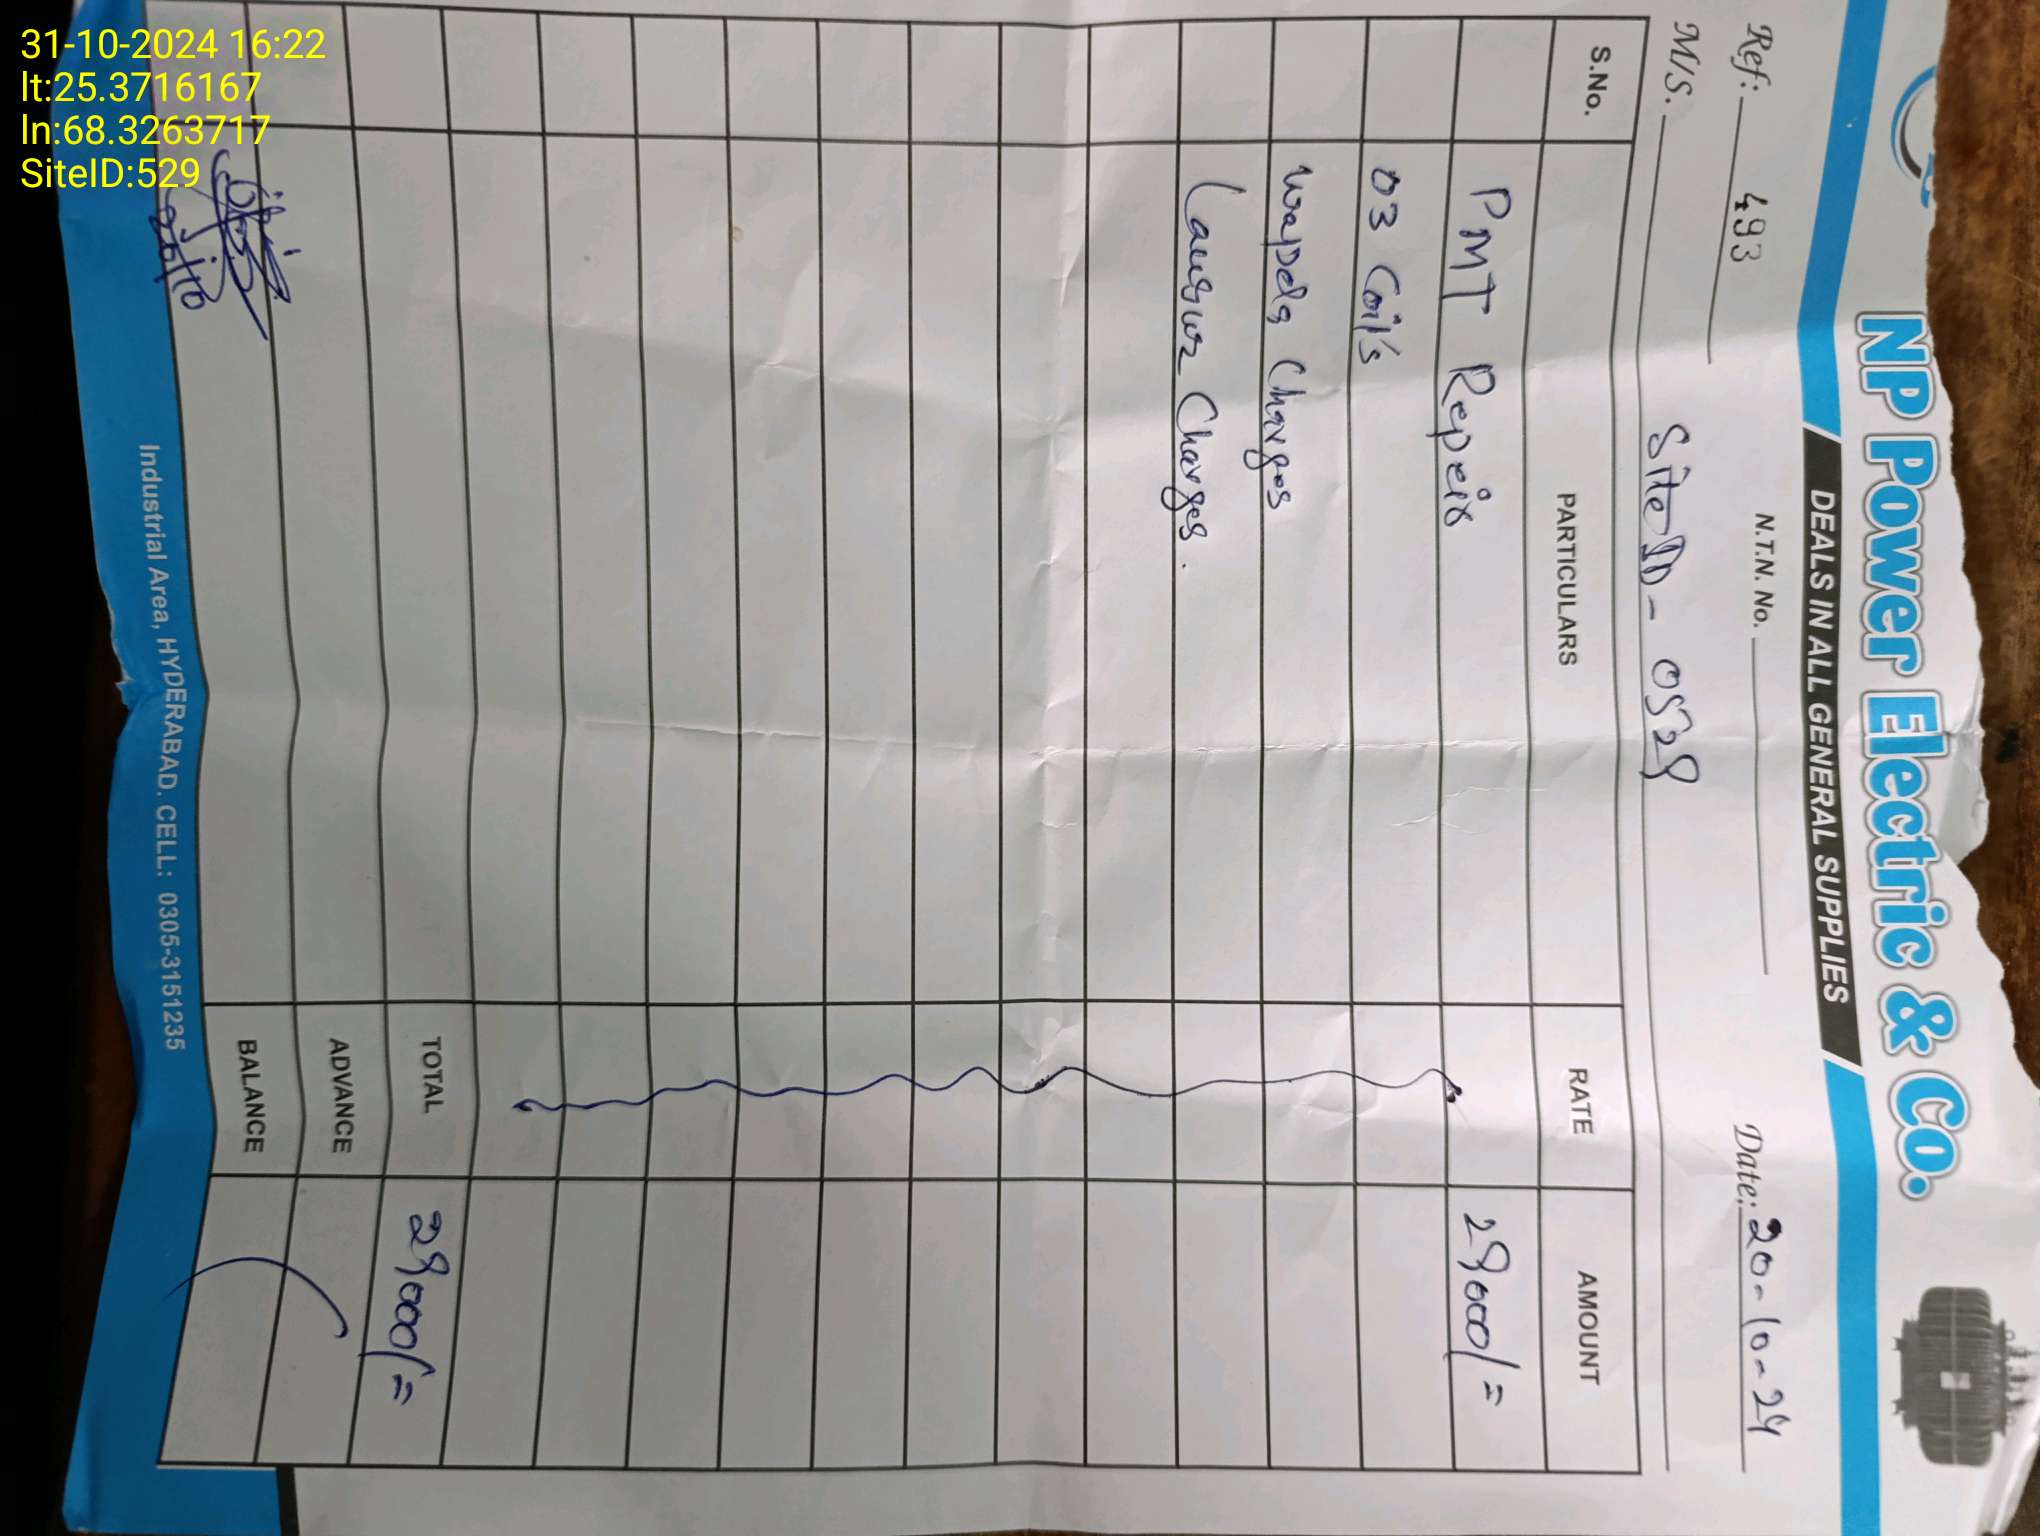 31-10-2024 16:22
lt:25.3716167
ln:68.3263717
SiteID:529
NP Power Electric & Co.
DEALS IN ALL GENERAL SUPPLIES
Ref: 493 N.T.N. No. Date: 20-10-24
M/S. SiteID- 0529
S.No. PARTICULARS RATE AMOUNT
PMT Repeir 29000/=
03 Coil's
Wapda Charges
Charges.
TOTAL 29000/=
ADVANCE
BALANCE
20/10
Industrial Area, HYDERABAD. CELL: 0305-3151235